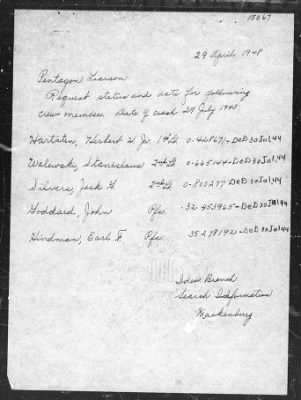 15067
29 April 1948
Pentagon Liaison
Request status and date for following
crew members Date of crash 29 July 1945
Hartstein, Herbert H Jr 1st Lt. 0-42867 - DED 30 Jul 44
Walowski, Stanislaus 2nd Lt 0-665144 - DED 30 Jul 44
Silvers, Jack H 2nd Lt 0-800277 - DED 30 Jul 44
Goddard, John Pfc. 32 453965 - DED 30 Jul 44
Hindman, Earl F. Pfc 35278192 - DED 30 Jul 44
Iden Branch
Search Information
Mackenburg